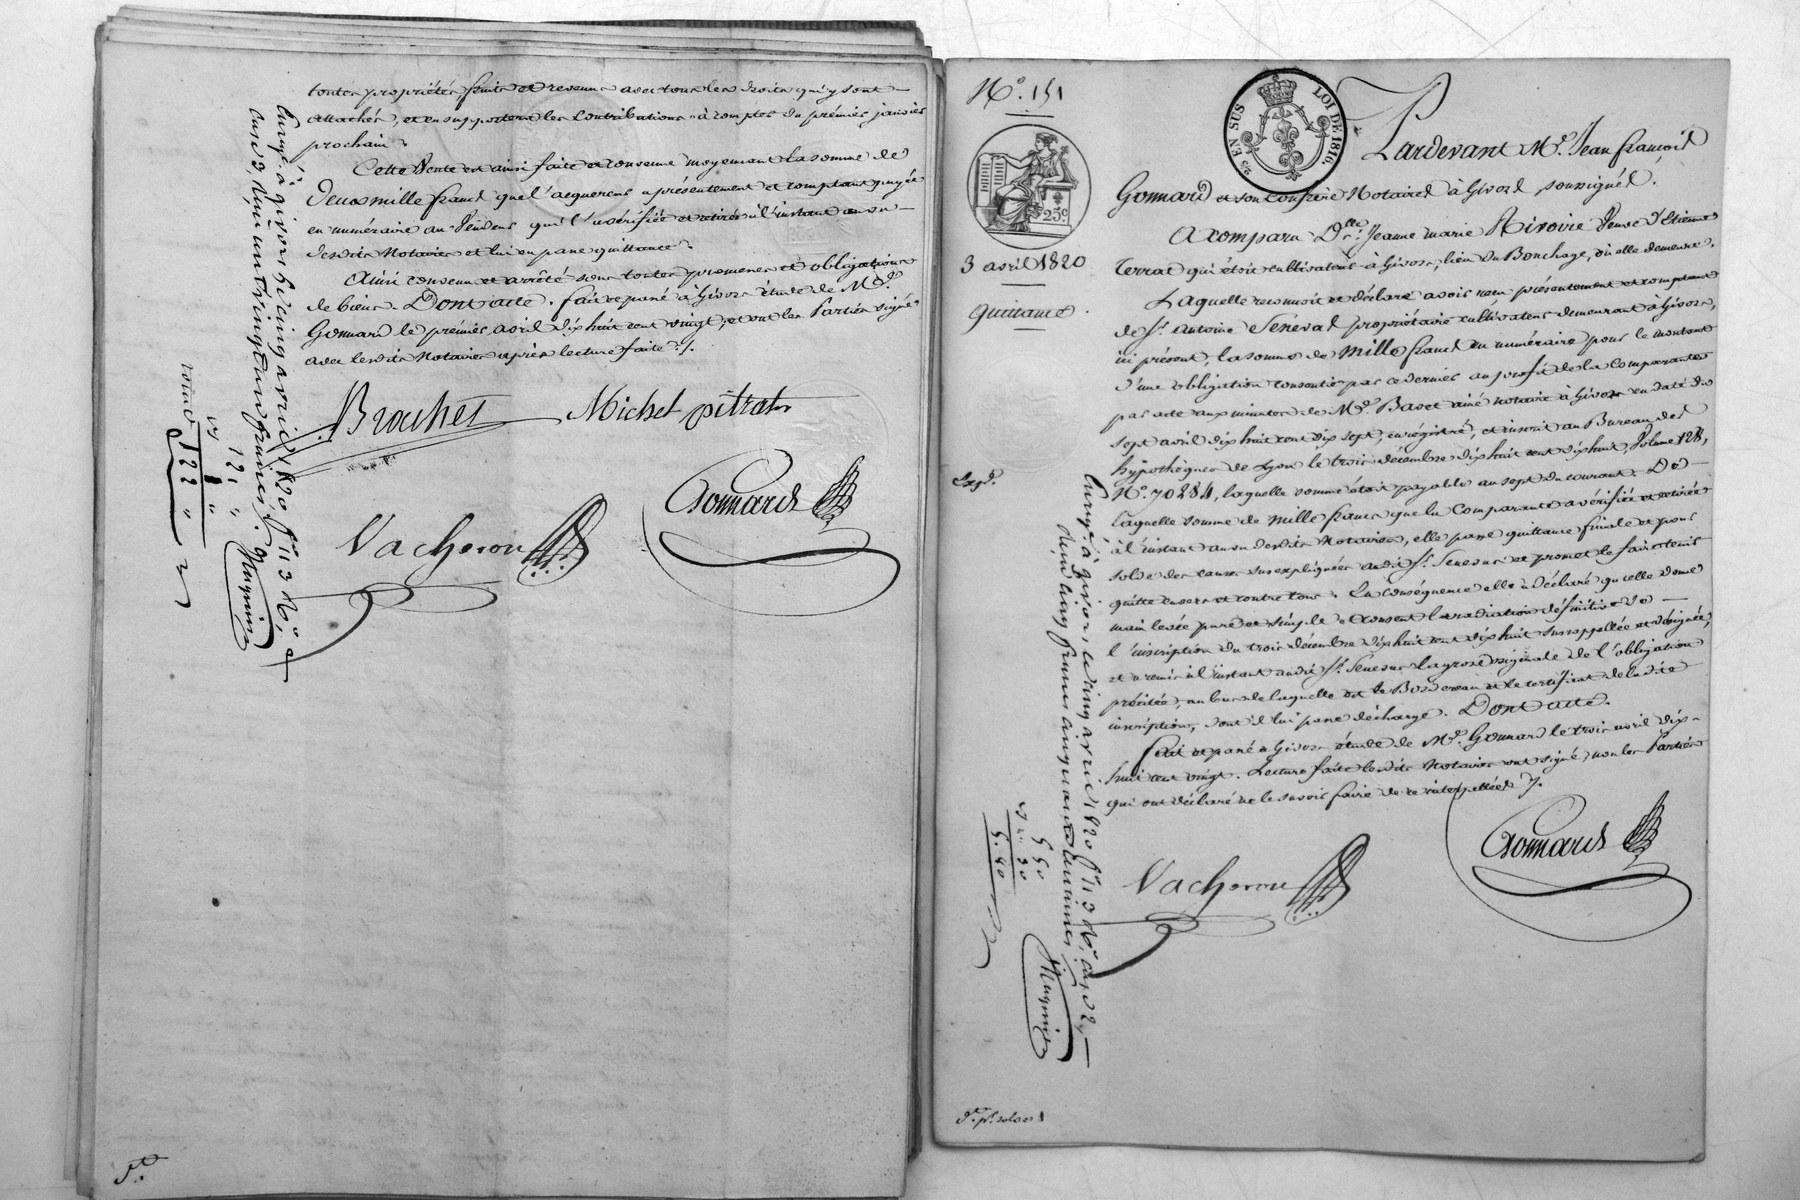 toutes propriétés fruits et revenus avec tous les droits qui y sont
attachés, et en supportera les contributions à compter du premier janvier
prochain.
Cette Vente est ainsi faite et convenue moyennant la somme de
Deux mille francs que l'acquereur a présentement et comptant payée
en numéraire au Vendeur qui l'a vérifiée et retirée à l'instant au vu
desdits Notaires et lui en passe quittance.
Ainsi convenu et arrêté sous toutes promesses et obligations
de biens. Dont acte. fait et passé à Givors étude de Me.
Gonnard le premier avril dix huit cent vingt, et ont les Parties signé
avec lesdits Notaires après lecture faite ./.
Brochet Michel pitrat
Vacheron Gonnard
Enregé. à givors le cinq avril 1820 fo. 113 Ro.
cent vingt un francs.
Mugnier
121 "
122 "
No. 151
3 avril 1820
quittance.
25c.
EN SUS LOI DE 1816.
Pardevant Me. Jean françois
Gonnard et son confrère Notaires à Givors soussignés.
A comparu Dlle. Jeanne marie Rivoire Veuve d'Etienne
Terrat qui étoit cultivateur à Givors, lieu du Bouchage, où elle demeure.
Laquelle reconnoit et déclare avoir reçu présentement et comptant
de Sr. Antoine Seneval propriétaire cultivateur demeurant à Givors,
ici présent, la somme de Mille francs en numéraire pour le montant
d'une obligation consentie par ce dernier au profit de la Comparante
par acte aux minutes de Me. Basset ainé notaire à Givors en date du
sept avril dix huit cent dix sept, enregistré, et inscrit au Bureau des
hypothèques de Lyon le trois décembre dix huit cent dix huit, Volume 128,
No. 70284, laquelle somme étoit payable au sept du courant. De
laquelle somme de Mille francs que la Comparante a vérifiée et retirée
à l'instant au vu desdits Notaires, elle passe quittance finale et pour
solde des causes susexpliquées audit Sr. Seneval et promet le faire tenir
quitte envers et contre tous. En conséquence elle a déclaré qu'elle donne
main levée pure et simple et consent la radiation définitive de
l'inscription du trois décembre dix huit cent dix huit susrappellée et désignée,
et a remis à l'instant audit Sr. Seneval la grosse originale de l'obligation
précitée, au bas de laquelle est le Bordereau et le certificat de ladite
inscription, dont il lui passe décharge. Dont acte.
fait et passé à Givors étude de Me. Gonnard le trois avril dix
huit cent vingt. Lecture faite lesdits Notaires ont signé, non les Parties
qui ont déclaré ne le savoir faire de ce interpellées ./.
Expé.
Enregé. à givors le cinq avril 1820 fo. 113 Ro. case 2,
Reçu cinq francs cinquante centimes
Mugnier
5 50
Vacheron Gonnard